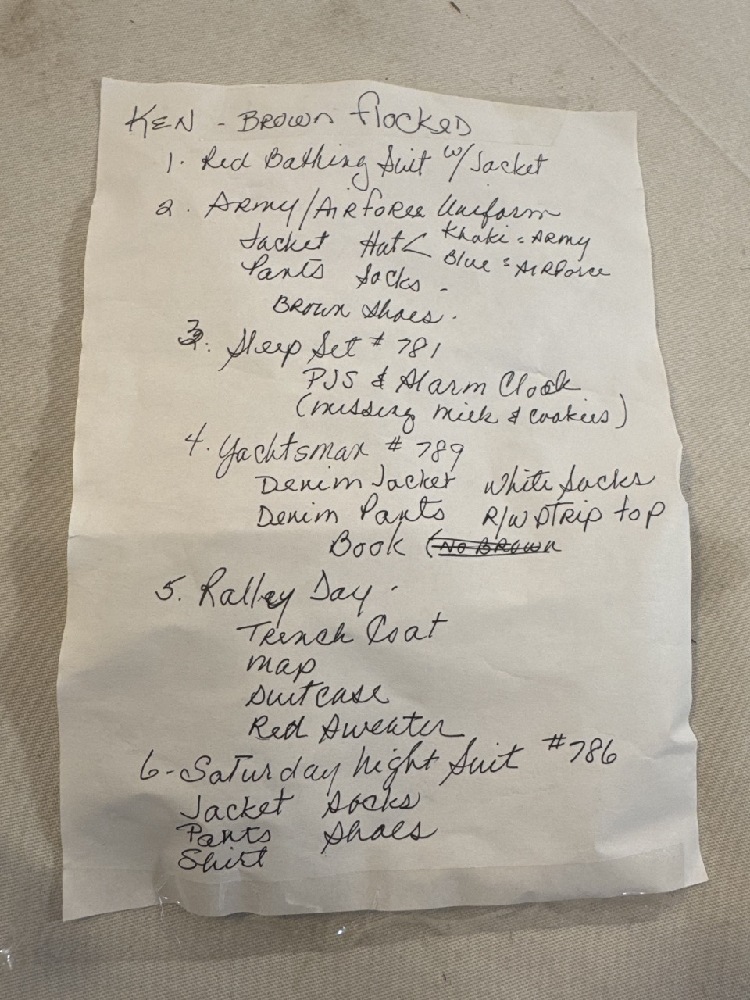 KEN - BROWN flocked
1. Red Bathing Suit w/Jacket
2. ARMY/AIRforce Uniform
Jacket Hat < Khaki = ARMY
Pants Socks - Blue = AIRforce
BROWN Shoes.
3. Sleep Set # 781
PJS & Alarm Clock
(missing milk & cookies)
4. Yachtsman # 789
Denim Jacket White Socks
Denim Pants R/W STRIP top
Book (No BROWN
5. Ralley Day.
Trench Coat
map
Suitcase
Red Sweater
6-Saturday Night Suit #786
Jacket Socks
Pants Shoes
Shirt